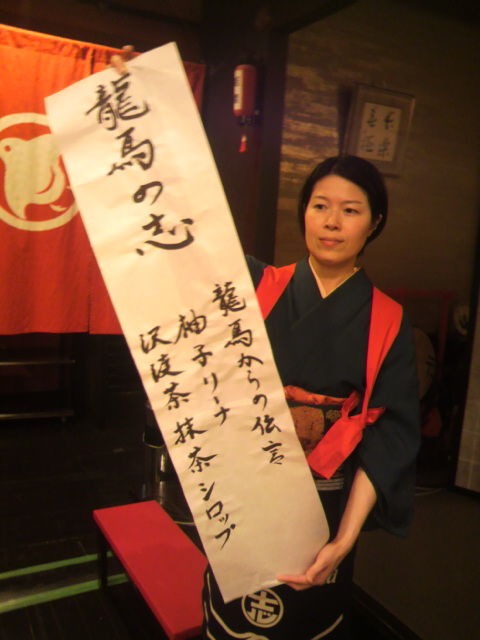 龍馬の志
龍馬からの伝言
柚子リーナ
沢渡茶抹茶シロップ
志